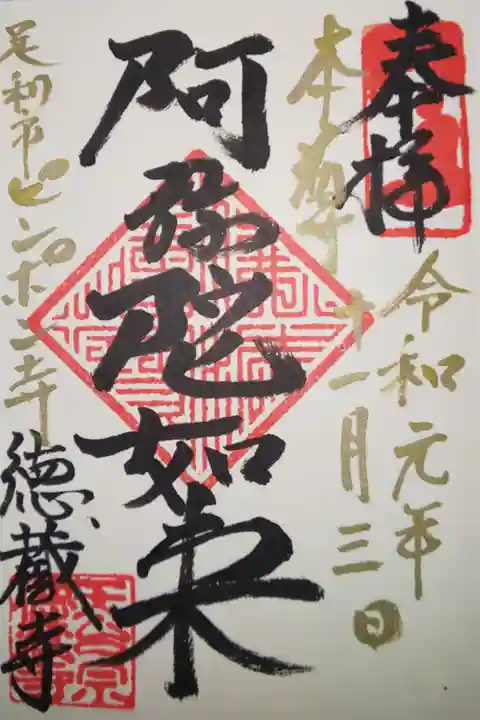 奉拝
令和元年
十一月三日
本尊
阿弥陀如来
足利市
徳蔵寺